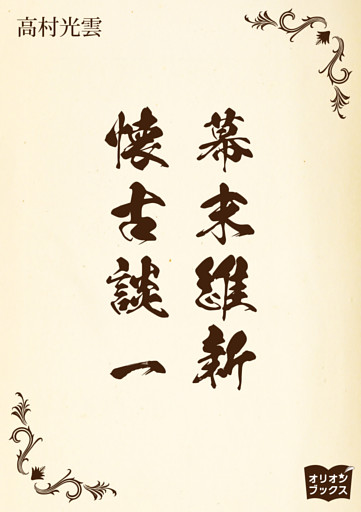 高村光雲
幕末維新
懐古談 一
オリオン
ブックス